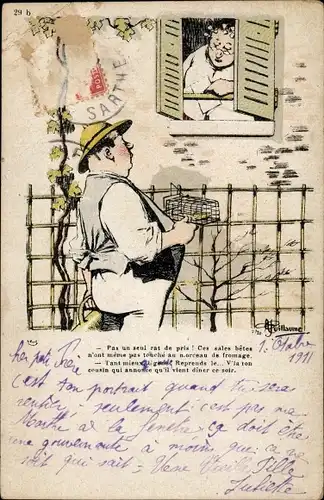 29 b
SARTHE
— Pas un seul rat de pris ! Ces sales bêtes
n'ont même pas touché au morceau de fromage.
— Tant mieux, Reprends le... V'la ton
cousin qui annonce qu'il vient dîner ce soir.
A. Guillaume
1. 1911
Père
C'est ton portrait quand tu sera
rentier, seulement c'est pas ma
à la fenêtre ça doit être
une gouvernante à moins que ce ne
soit qui sait - Fille
Juliette